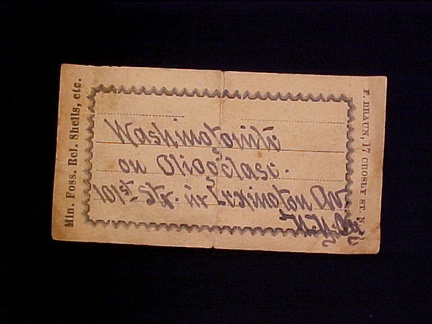 Min. Foss. Rel. Shells, etc.
Washingtonite
on Oligoclase.
101st Str. in Lexington Av
N.Y. City
F. BRAUN, 17 CROSBY ST. N.